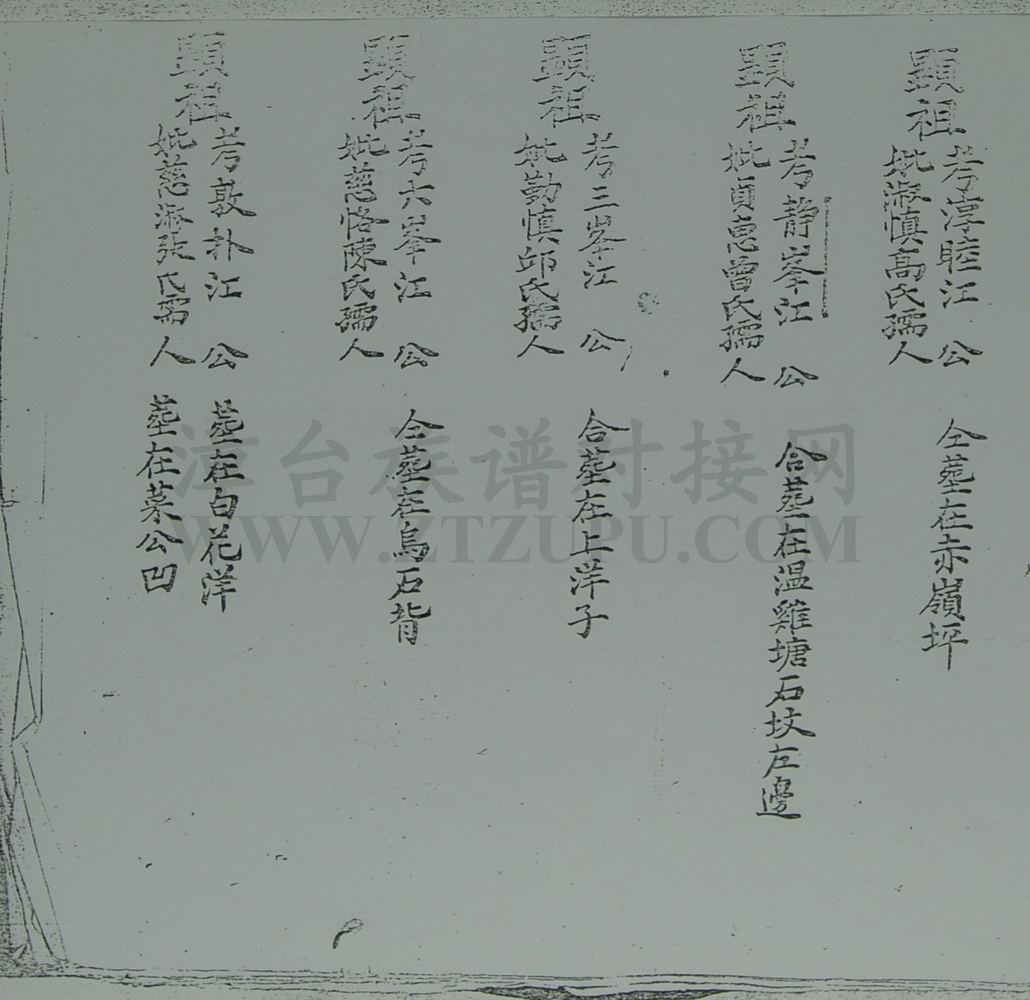 顯祖
考淳睦江公
妣淑慎高氏孺人
仝塟在赤嶺坪
顯祖
考靜峯江公
妣貞惠曾氏孺人
合塟在温雞塘石坟左邊
顯祖
考三峯江公
妣勤慎邱氏孺人
合塟在上洋子
顯祖
考六峯江公
妣慈恪陳氏孺人
仝塟在烏石背
顯祖
考敦朴江公
塟在白花洋
妣慈淑張氏孺人
塟在菜公凹
漳台族谱对接网
WWW.ZTZUPU.COM